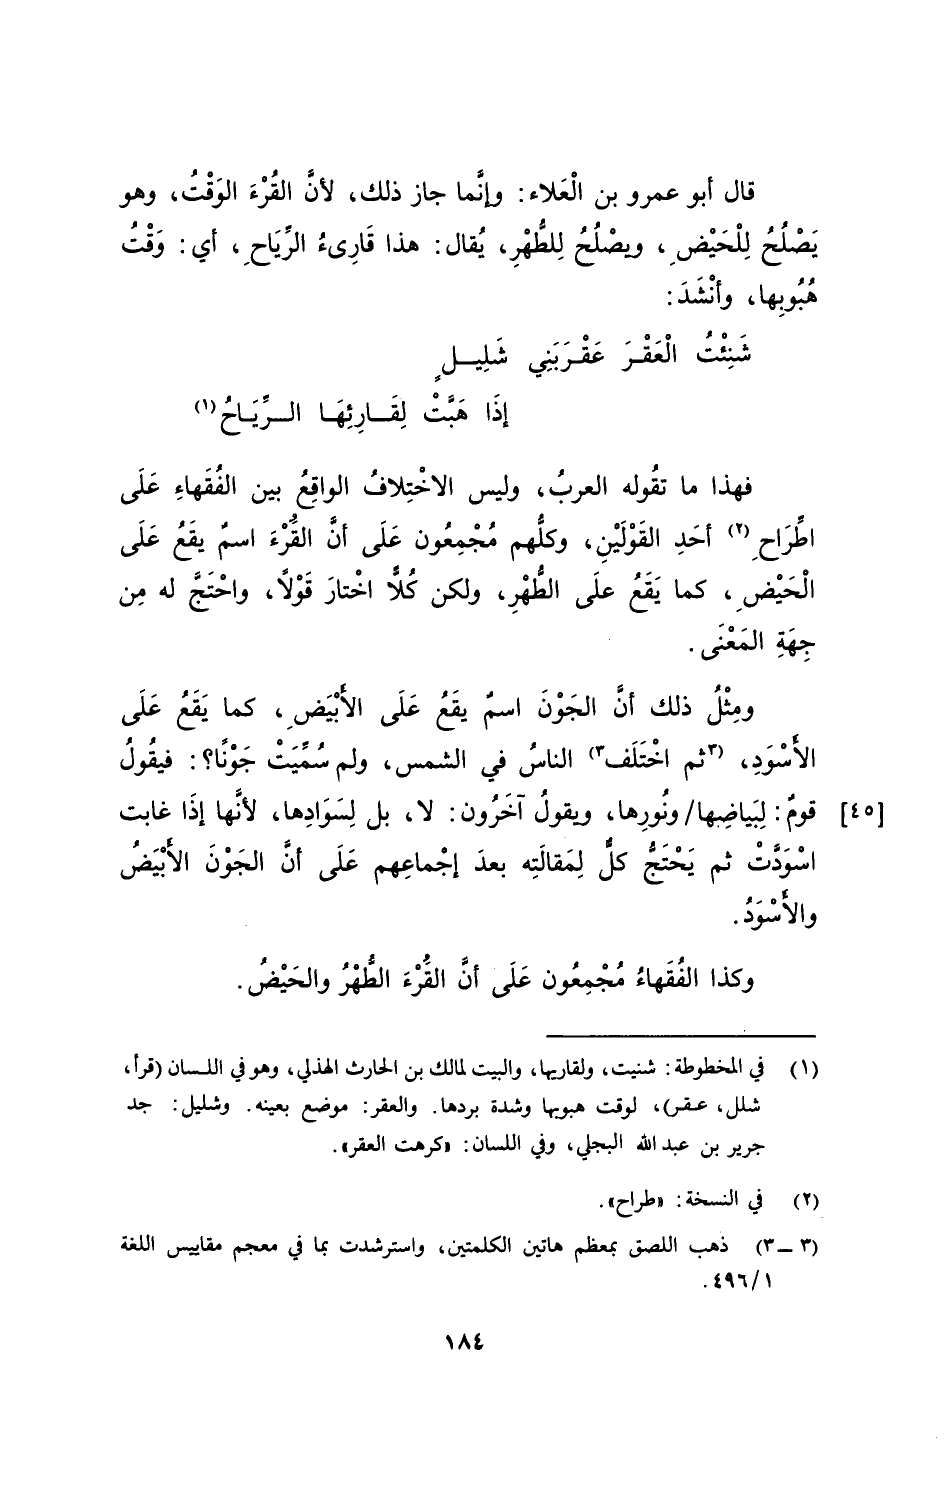 قال أبو عمرو بن الْعَلاء: وإنَّما جاز ذلك، لأنَّ القُرْءَ الوَقْتُ، وهو
يَصْلُحُ لِلْحَيْضِ، ويصْلُحُ للطُّهْرِ، يُقال: هذا قَارِىءُ الرِّيَاحِ، أي: وَقْتُ
هُبُوبِها، وأنْشَدَ:
شَنِئْتُ الْعَقْرَ عَقْرَبَنِي شَلِيلٍ
إذَا هَبَّتْ لِقَارِئِهَا الرِّيَاحُ(١)
فهذا ما تقُوله العربُ، وليس الاخْتِلافُ الواقِعُ بين الفُقَهاءِ عَلَى
اطِّرَاحِ(٢) أحَدِ القَوْلَيْنِ، وكلُّهم مُجْمِعُون عَلَى أنَّ القُرْءَ اسمٌ يقَعُ عَلَى
الْحَيْضِ، كما يَقَعُ علَى الطُّهْرِ، ولكن كُلًّا اخْتارَ قَوْلًا، واحْتَجَّ له مِن
جِهَةِ المَعْنَى.
ومِثْلُ ذلك أنَّ الجَوْنَ اسمٌ يقَعُ عَلَى الأَبْيَضِ، كما يَقَعُ عَلَى
الأَسْوَدِ، (٣ثم اخْتَلَف٣) الناسُ في الشمس، ولم سُمِّيَتْ جَوْنًا؟: فيقُولُ
[٤٥] قومٌ: لِبَياضِها/ونُورِها، ويقولُ آخَرُون: لا، بل لِسَوَادِها، لأنَّها إذَا غابت
اسْوَدَّتْ ثم يَحْتَجُّ كلٌّ لِمَقالَتِه بعدَ إجْماعِهم عَلَى أنَّ الجَوْنَ الأَبْيَضُ
والأَسْوَدُ.
وكذا الفُقَهاءُ مُجْمِعُون عَلَى أنَّ القُرْءَ الطُّهْرُ والحَيْضُ.
(١) في المخطوطة: شنيت، ولقاريها، والبيت لمالك بن الحارث الهذلي، وهو في اللسان (قرأ،
شلل، عقر)، لوقت هبوبها وشدة بردها. والعقر: موضع بعينه. وشليل: جد
جرير بن عبد الله البجلي، وفي اللسان: «كرهت العقر».
(٢) في النسخة: «طراح».
(٣ ـ ٣) ذهب اللصق بمعظم هاتين الكلمتين، واسترشدت بما في معجم مقاييس اللغة
٤٩٦/١.
١٨٤